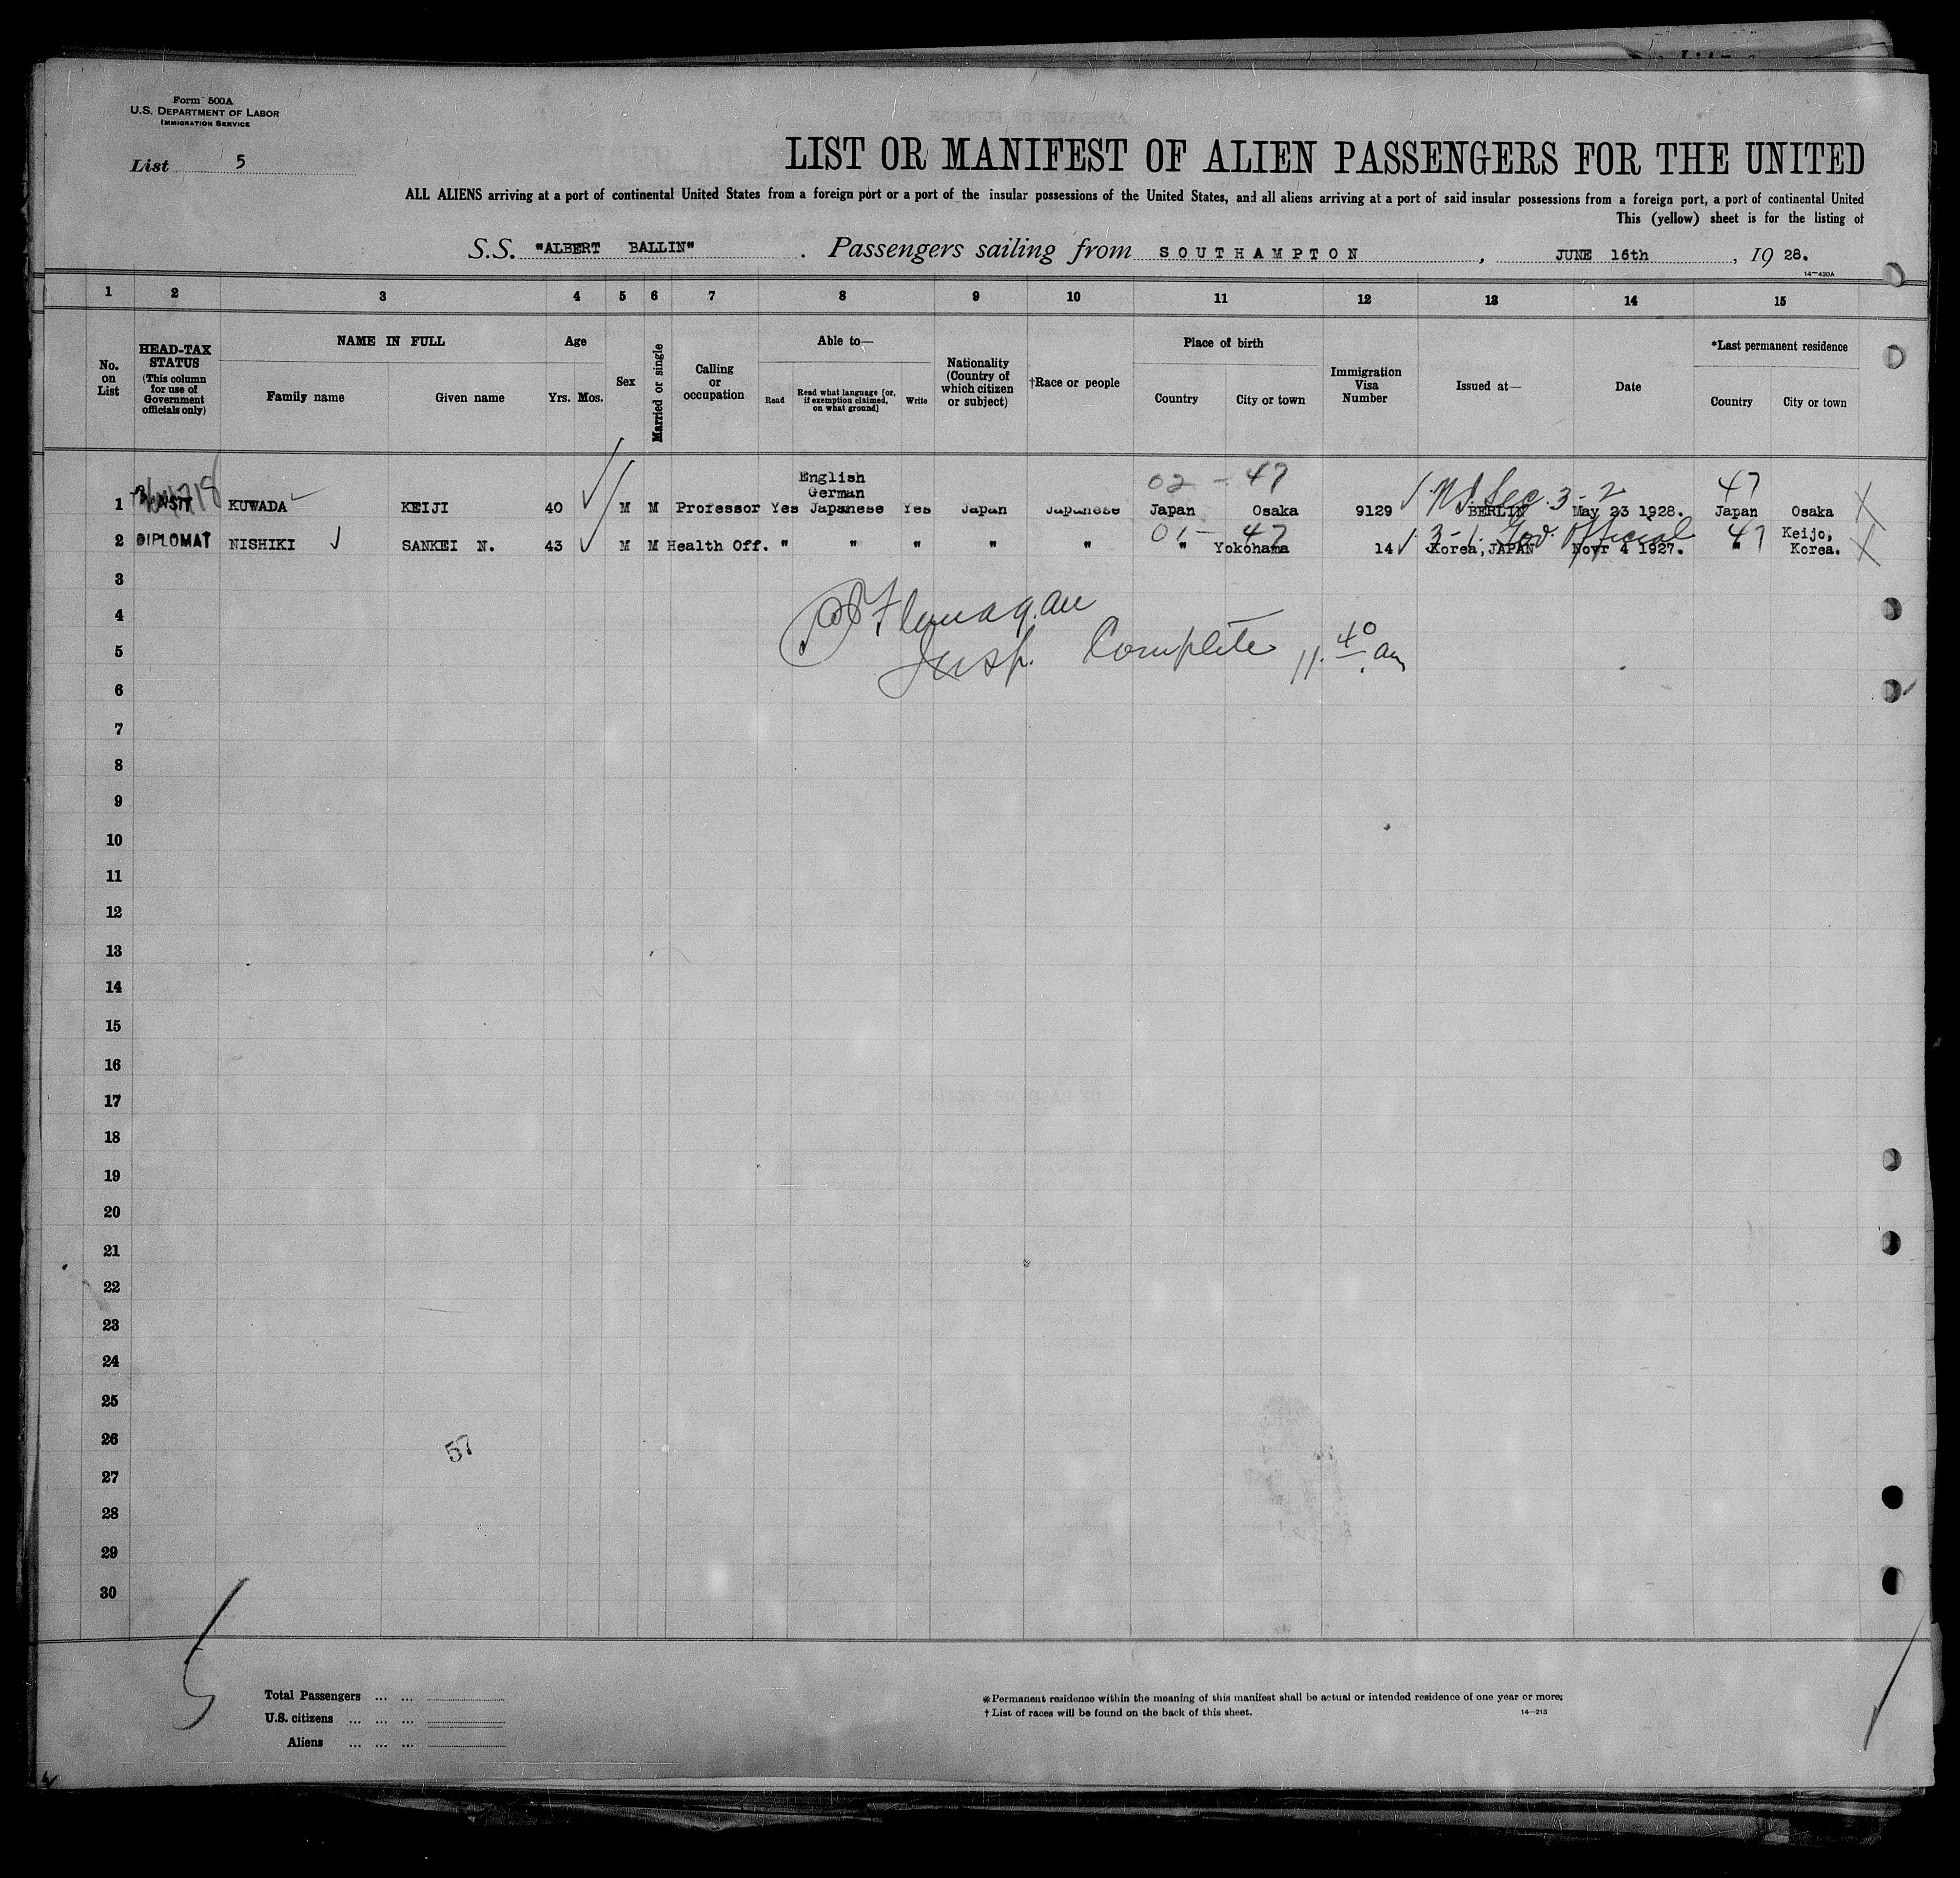 Form 500A
U.S. DEPARTMENT OF LABOR
IMMIGRATION SERVICE
List 5
LIST OR MANIFEST OF ALIEN PASSENGERS FOR THE UNITED
ALL ALIENS arriving at a port of continental United States from a foreign port or a port of the insular possessions of the United States, and all aliens arriving at a port of said insular possessions from a foreign port, a port of continental United
This (yellow) sheet is for the listing of
S.S. "ALBERT BALLIN" . Passengers sailing from SOUTHAMPTON , JUNE 16th , 19 28.
14—430A
1 2 3 4 5 6 7 8 9 10 11 12 13 14 15
No. on List
HEAD-TAX STATUS (This column for use of Government officials only)
NAME IN FULL
Family name Given name
Age
Yrs. Mos.
Sex
Married or single
Calling or occupation
Able to—
Read
Read what language [or, if exemption claimed, on what ground]
Write
Nationality (Country of which citizen or subject)
†Race or people
Place of birth
Country City or town
Immigration Visa Number
Issued at—
Date
*Last permanent residence
Country City or town
02 - 47 47
English
German
1 KUWADA KEIJI 40 M M Professor Yes Japanese Yes Japan Japanese Japan Osaka 9129 BERLIN May 23 1928. Japan Osaka
Sec. 3-2
01 - 47 3-1 Gov. Official 47
2 DIPLOMAT NISHIKI SANKEI N. 43 M M Health Off. " " " " " " Yokohama 14 Korea, JAPAN Novr 4 1927. " Keijo, Korea.
3
4 Flanagan
5 Insp. Complete 11.40 am
6
7
8
9
10
11
12
13
14
15
16
17
18
19
20
21
22
23
24
25
26 57
27
28
29
30
Total Passengers ... ...
U.S. citizens ... ... ...
Aliens ... ... ...
*Permanent residence within the meaning of this manifest shall be actual or intended residence of one year or more.
† List of races will be found on the back of this sheet.
14—213